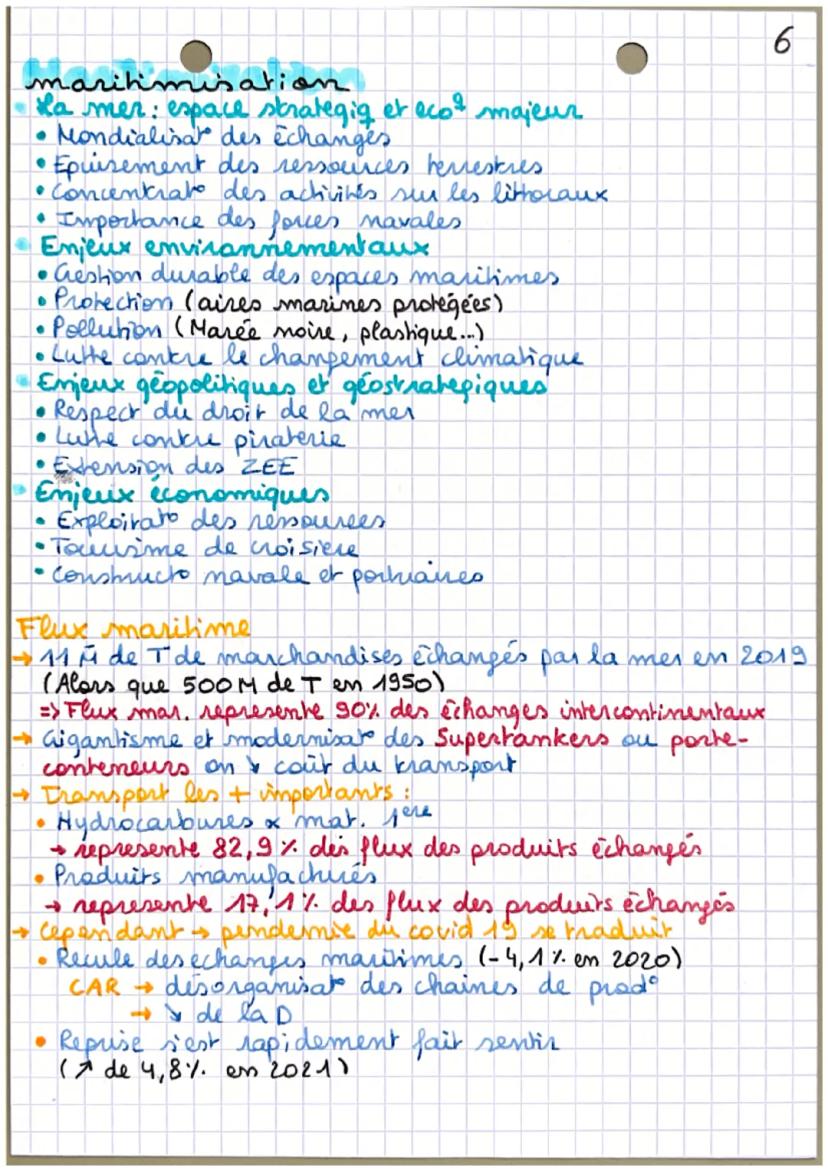 6
maritimisation
La mer : espace strategiq et ecoq majeur
• Mondialisat° des échanges
• Epuisement des ressources terrestres
• Concentrat° des activités sur les littoraux
• Importance des forces navales
Enjeux environnementaux
• Gestion durable des espaces maritimes
• Protection (aires marines protégées)
• Pollution (Marée noire, plastique...)
• Lutte contre le changement climatique
Enjeux géopolitiques et géostrategiques
• Respect du droit de la mer
• Lutte contre piraterie
• Extension des ZEE
Enjeux économiques
• Exploitat° des ressources
• Tourisme de croisiere
• Constructo navale et portuaires
Flux maritime
→ 11 M̄ de T de marchandises échangés par la mer en 2019
(Alors que 500 M de T en 1950)
=> Flux mar. represente 90% des échanges intercontinentaux
→ Gigantisme et modernisat° des Supertankers ou porte-
conteneurs on ↘ coût du transport
→ Transport les + importants :
• Hydrocarbures & mat. 1ere
→ represente 82,9 % des flux des produits échangés
• Produits manufacturés
→ represente 17,1 % des flux des produits échangés
→ Cependant → pendemie du covid 19 se traduit
• Recule des echanges maritimes (-4,1 % en 2020)
CAR → désorganisat° des chaines de prod°
→ ↘ de la D
• Reprise s'est rapidement fait sentir
(↗ de 4,8% en 2021)